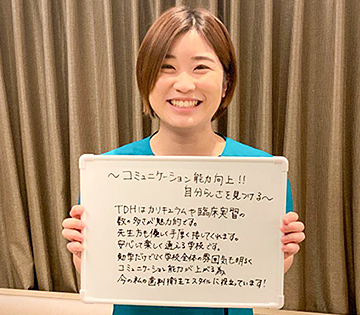 ～コミュニケーション能力向上!!
自分らしさを見つける～
TDHはカリキュラムや臨床実習の
数の多さが魅力的です。
先生方も優しく手厚く接してくれます。
安心して楽しく通える学校です。
勉学だけでなく学校全体の雰囲気も明るく
コミュニケーション能力が上がる為、
今の私の歯科衛生士スタイルに役立っています!